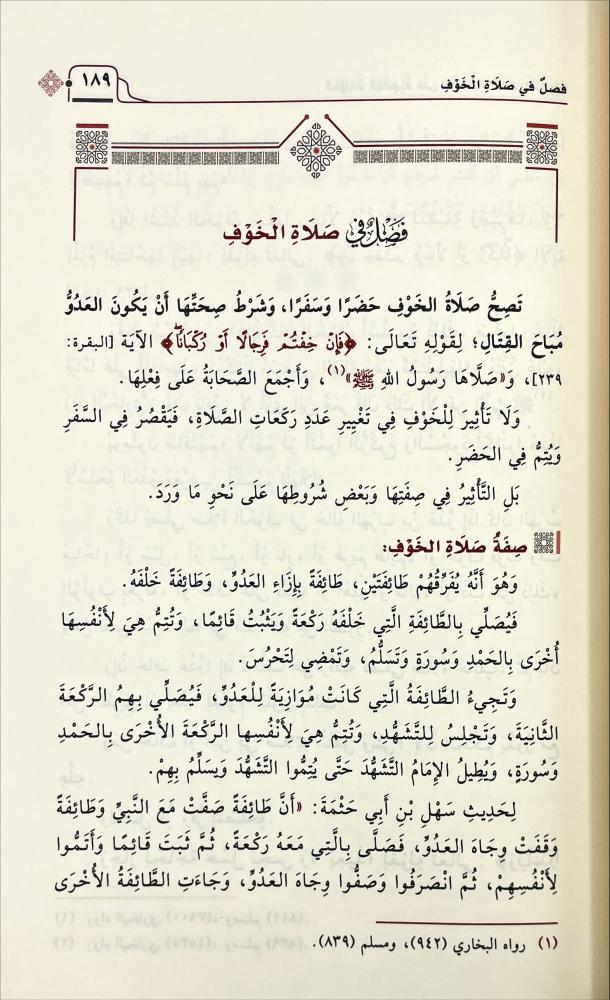 فصلٌ في صَلَاةِ الْخَوْفِ
١٨٩
فَصْلٌ فِي صَلَاةِ الْخَوْفِ
تَصِحُّ صَلَاةُ الخَوْفِ حَضَرًا وَسَفَرًا، وَشَرْطُ صِحَّتِهَا أَنْ يَكُونَ العَدُوُّ
مُبَاحَ القِتَالِ؛ لِقَوْلِهِ تَعَالَى: ﴿فَإِنْ خِفْتُمْ فَرِجَالًا أَوْ رُكْبَانًا﴾ الآيَةَ [البقرة:
٢٣٩]، وَ«صَلَّاهَا رَسُولُ اللهِ ﷺ»(١)، وَأَجْمَعَ الصَّحَابَةُ عَلَى فِعْلِهَا.
وَلَا تَأْثِيرَ لِلْخَوْفِ فِي تَغْيِيرِ عَدَدِ رَكَعَاتِ الصَّلَاةِ، فَيَقْصُرُ فِي السَّفَرِ
وَيُتِمُّ فِي الحَضَرِ.
بَلِ التَّأْثِيرُ فِي صِفَتِهَا وَبَعْضِ شُرُوطِهَا عَلَى نَحْوِ مَا وَرَدَ.
صِفَةُ صَلَاةِ الخَوْفِ:
وَهُوَ أَنَّهُ يُفَرِّقُهُمْ طَائِفَتَيْنِ، طَائِفَةً بِإِزَاءِ العَدُوِّ، وَطَائِفَةً خَلْفَهُ.
فَيُصَلِّي بِالطَّائِفَةِ الَّتِي خَلْفَهُ رَكْعَةً وَيَثْبُتُ قَائِمًا، وَتُتِمُّ هِيَ لِأَنْفُسِهَا
أُخْرَى بِالحَمْدِ وَسُورَةٍ وَتَسَلُّمُ، وَتَمْضِي لِتَحْرُسَ.
وَتَجِيءُ الطَّائِفَةُ الَّتِي كَانَتْ مُوَازِيَةً لِلْعَدُوِّ، فَيُصَلِّي بِهِمُ الرَّكْعَةَ
الثَّانِيَةَ، وَتَجْلِسُ لِلتَّشَهُّدِ، وَتُتِمُّ هِيَ لِأَنْفُسِها الرَّكْعَةَ الأُخْرَى بِالحَمْدِ
وَسُورَةٍ، وَيُطِيلُ الإِمَامُ التَّشَهُّدَ حَتَّى يُتِمُّوا التَّشَهُّدَ وَيَسَلِّمُ بِهِمْ.
لِحَدِيثِ سَهْلِ بْنِ أَبِي حَثْمَةَ: «أَنَّ طَائِفَةً صَفَّتْ مَعَ النَّبِيِّ وَطَائِفَةً
وَقَفَتْ وِجَاهَ العَدُوِّ، فَصَلَّى بِالَّتِي مَعَهُ رَكْعَةً، ثُمَّ ثَبَتَ قَائِمًا وَأَتَمُّوا
لِأَنْفُسِهِمْ، ثُمَّ انْصَرَفُوا وَصَفُّوا وِجَاهَ العَدُوِّ، وَجَاءَتِ الطَّائِفَةُ الأُخْرَى
(١) رواه البخاري (٩٤٢)، ومسلم (٨٣٩).